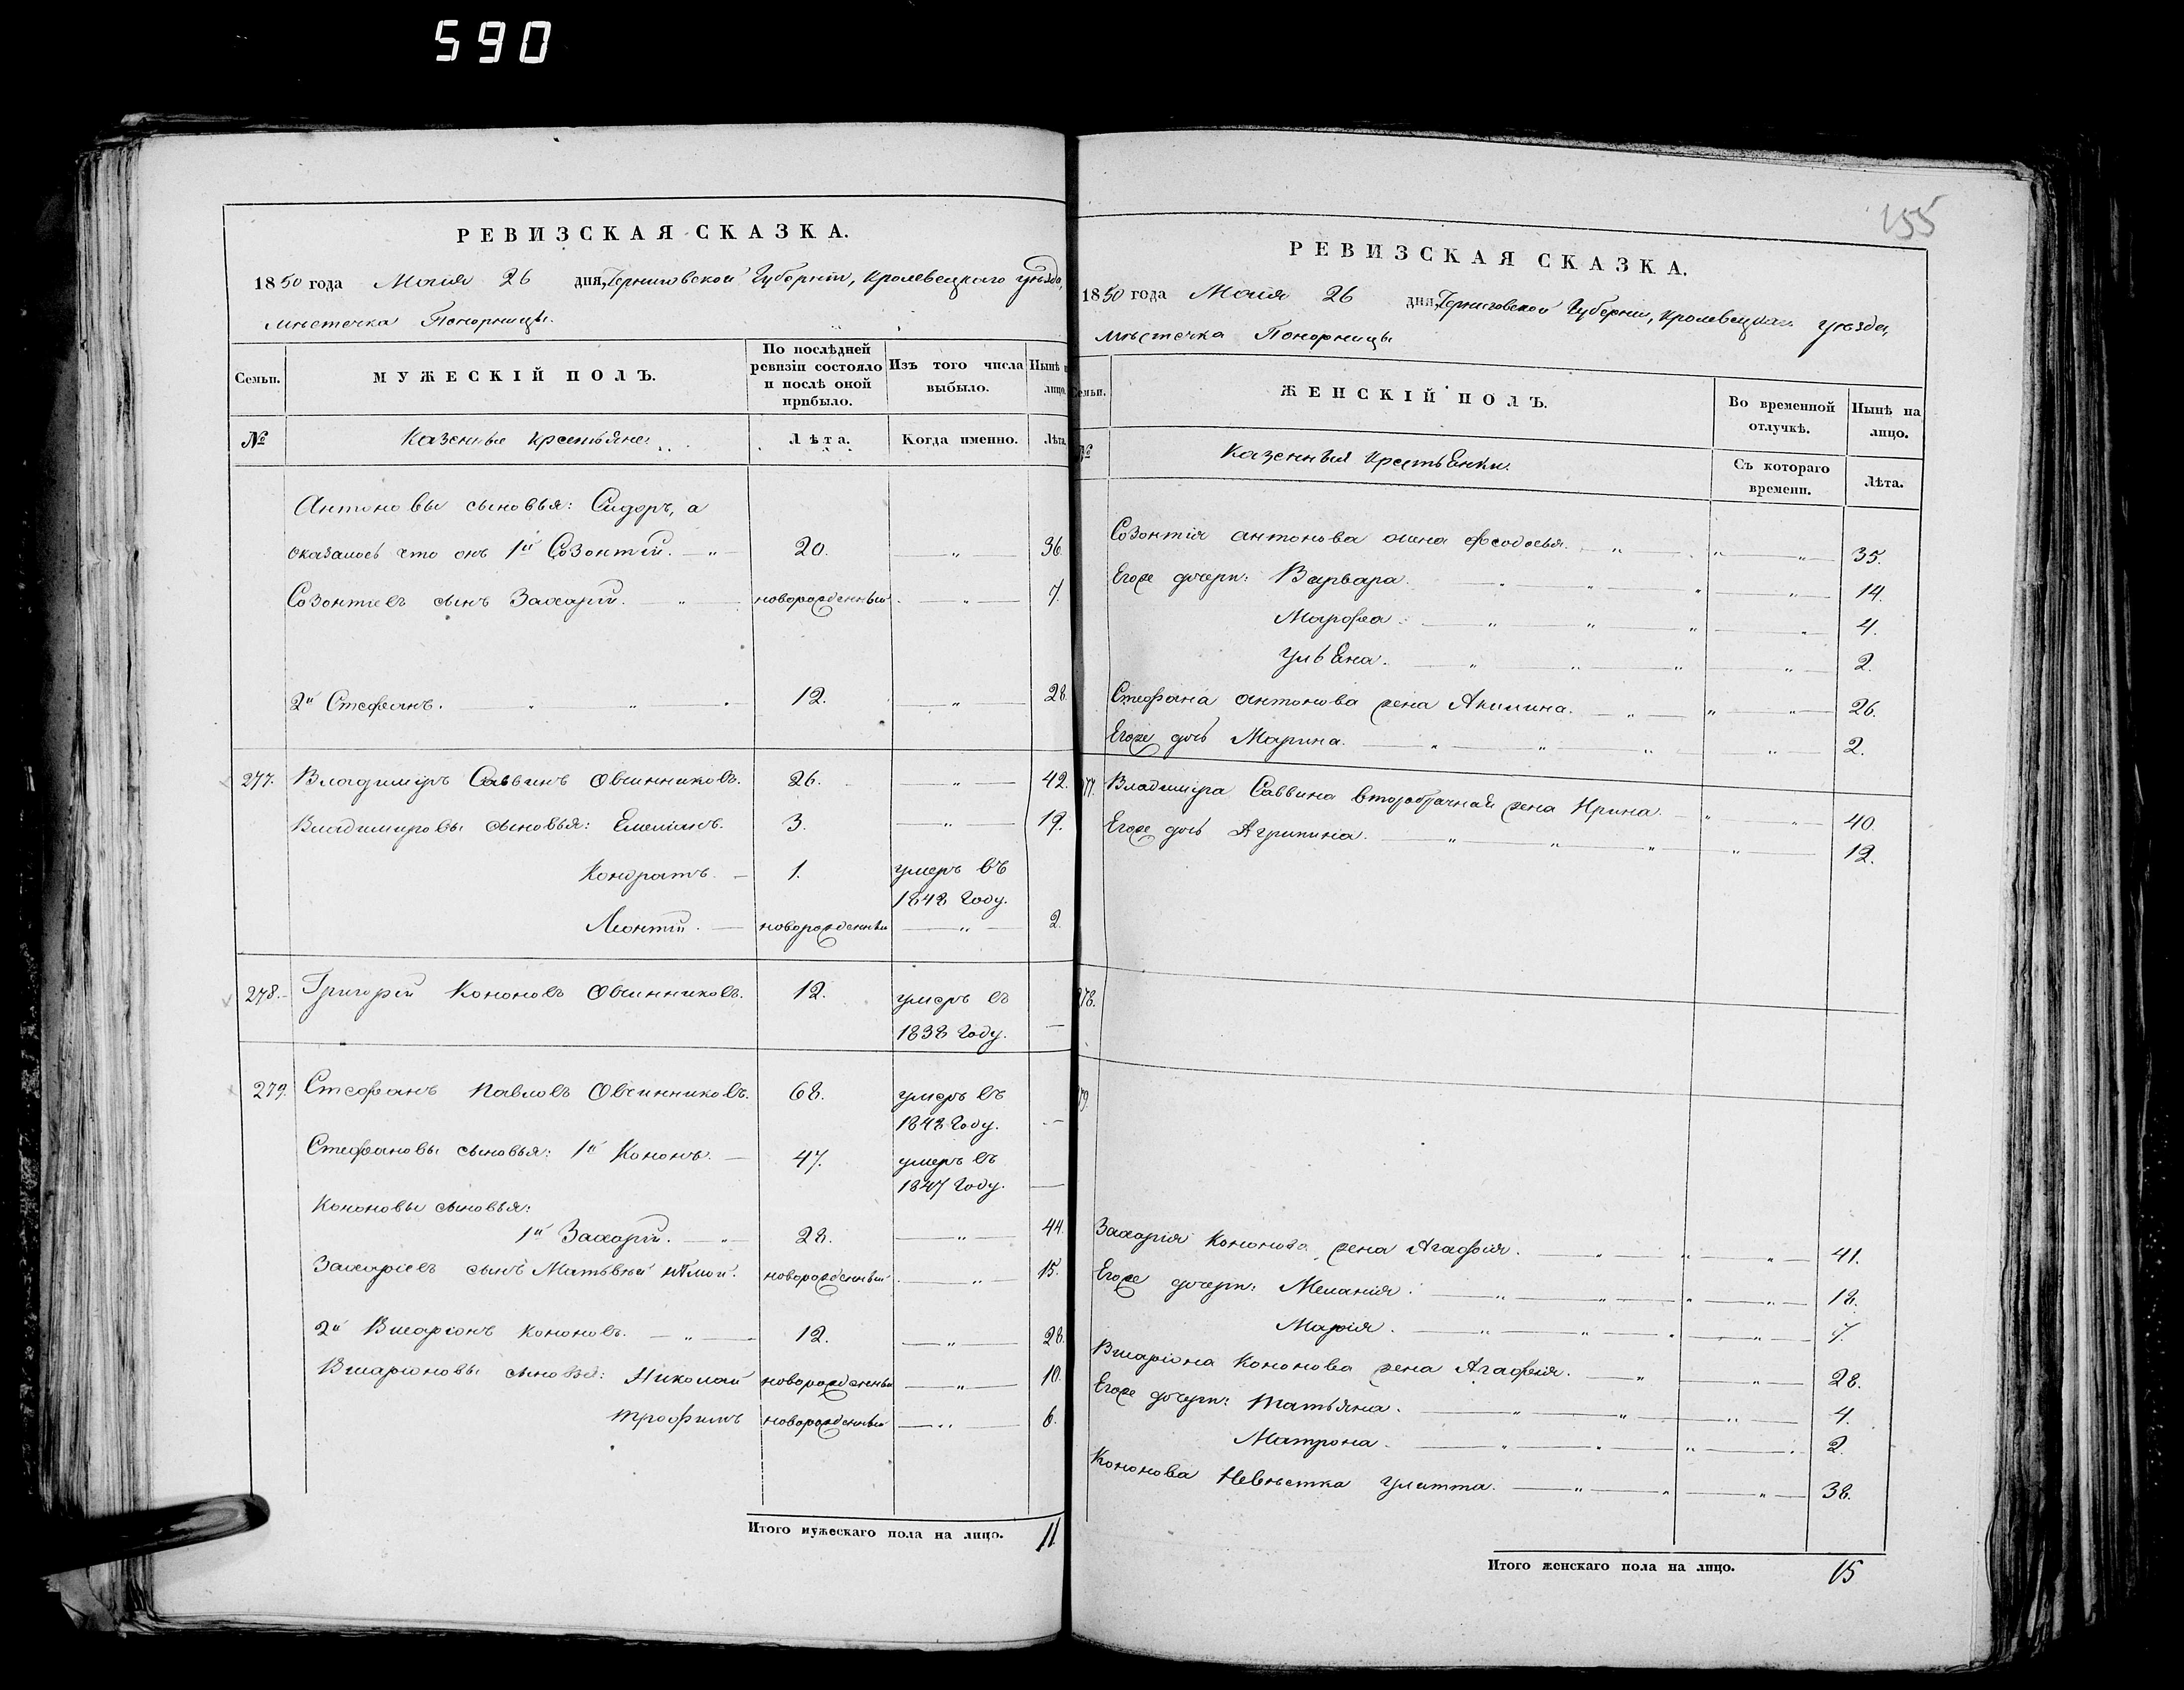 590
РЕВИЗСКАЯ СКАЗКА.
1850 года Маія 26 дня, Черниговской Губерніи, Кролевецкаго уѣзда,
мѣстечка Понорницы.
Семьи.
МУЖЕСКІЙ ПОЛЪ.
По послѣдней ревизіи состояло и послѣ оной прибыло.
Изъ того числа выбыло.
Нынѣ лицо.
№ Казенные крестьяне. Лѣта. Когда именно. Лѣта
Антоновы сыновья: Сидоръ, а
оказалось что онъ 1й Созонтій. — „ — 20. — „ — 36.
Созонтіевъ сынъ Захарій. — „ — новорожденный — „ — 7.
2й Стефанъ. „ „ „ 12. — „ — 28.
277. Владимиръ Саввинъ Овчинниковъ. 26. — „ — 42.
Владимировы сыновья: Емелианъ. 3. — „ — 19.
Кондратъ. — 1. умеръ въ
1848 Году.
Леонтій. — новорожденный — „ — 2.
278. Григорій Кононовъ Овчинниковъ. 12. умеръ въ
1838 Году. —
279. Стефанъ Павловъ Овчинниковъ. 68. умеръ въ
1848 Году. —
Стефановы сыновья: 1й Кононъ. — 47. умеръ въ
1847 Году. —
Кононовы сыновья:
1й Захарій. — „ 28. — „ — 44.
Захаріевъ сынъ Матьвѣй нѣмой. новорожденный — „ — 15.
2й Виаріонъ Кононовъ. — „ — 12. — „ — 28.
Виаріоновы сыновья: Николай новорожденный — „ — 10.
Трофимъ новорожденный — „ — 6.
Итого мужескаго пола на лицо. 11
155
РЕВИЗСКАЯ СКАЗКА.
1850 года Маія 26 дня, Черниговской Губерніи, Кролевецкаго уѣзда,
мѣстечка Понорницы
Семьи.
ЖЕНСКІЙ ПОЛЪ.
Во временной отлучкѣ.
Нынѣ на лицо.
№ Казенныя крестьянки. Съ котораго времени. Лѣта.
Созонтія Антонова жена Феодосья. — „ — „ „ — 35.
Егоже дочери: Варвара. — „ — „ — „ — „ — 14.
Марфа. — „ — „ — „ — „ — 4.
Ульяна. — „ — „ — „ — „ — 2.
Стефана Антонова жена Акилина. — „ — „ „ — 26.
Егоже дочь Марина. — „ — „ — „ — „ — 2.
277. Владимира Саввина второбрачная жена Ирина. — „ — „ — 40.
Егоже дочь Агрипина. — „ — „ — „ — „ — 12.
278.
279.
Захарія Кононова жена Агафія. — „ — „ — „ — 41.
Егоже дочери: Меланія. — „ — „ — „ — „ — 18.
Марія. — „ — „ — „ — „ — 7.
Виаріона Кононова жена Агафія. — „ — „ — 28.
Егоже дочери: Татьяна. — „ — „ — „ — 4.
Матрона. — „ — „ — „ — 2.
Кононова невѣстка Улитта. — „ — „ — „ — 38.
Итого женскаго пола на лицо. 15